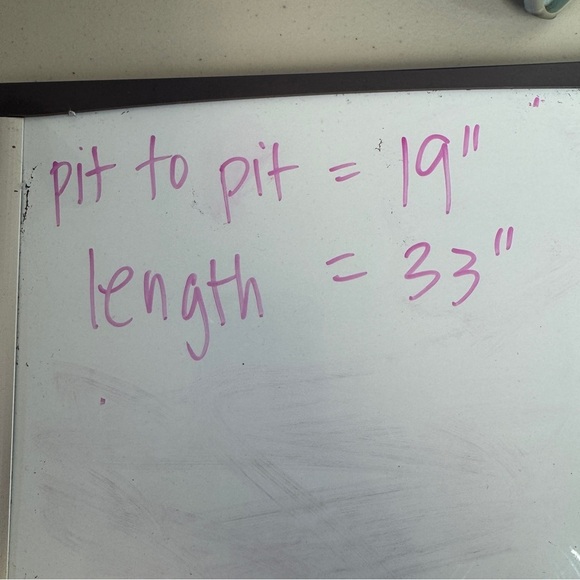 pit to pit = 19"
length = 33"